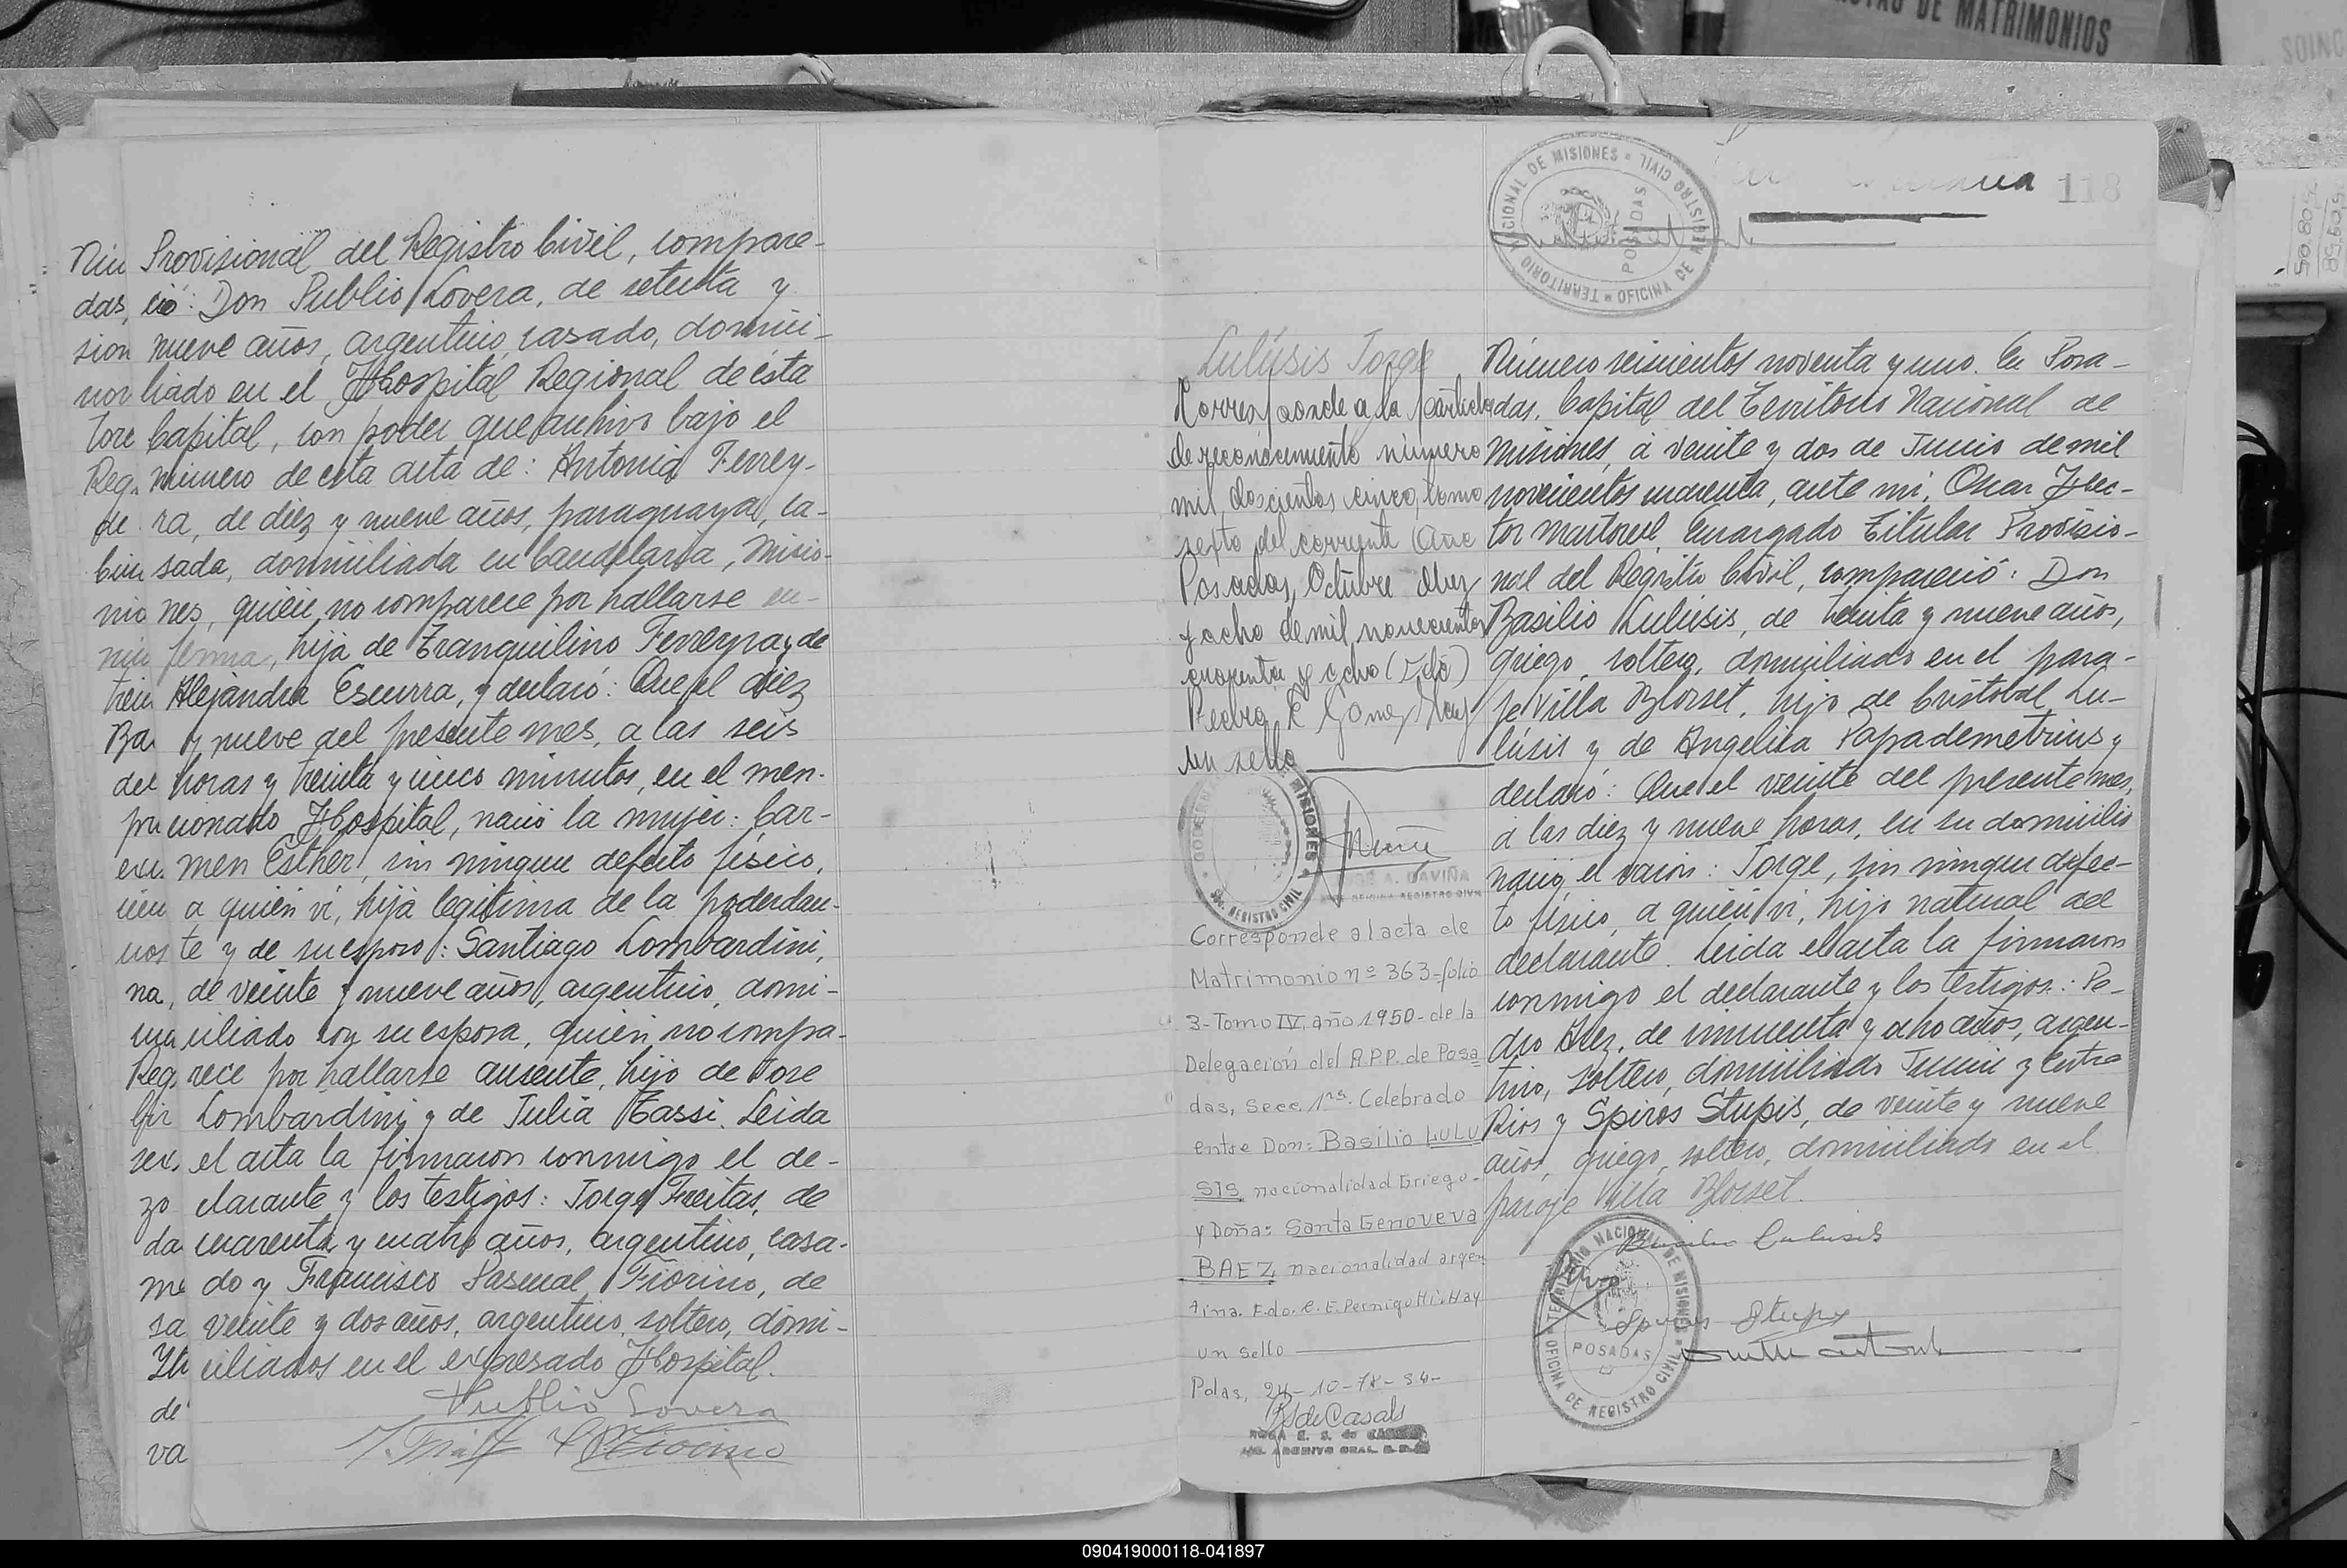 DE MATRIMONIOS
Provisional del Registro Civil, compare-
ció: Don Publio Lovera, de setenta y
nueve años, argentino, casado, domici-
liado en el Hospital Regional de ésta
Capital, con poder que archivo bajo el
número de esta acta de: Antonia Ferrey-
ra, de diez y nueve años, paraguaya, ca-
sada, domiciliada en Candelaria, Misio-
nes, quién no comparece por hallarse en-
ferma, hija de Tranquilino Ferreyra y de
Alejandra Escurra, y declaró: Que el diez
y nueve del presente mes, a las seis
horas y treinta y cinco minutos, en el men-
cionado Hospital, nació la mujer: Car-
men Esther, sin ningun defecto físico,
a quién ví, hija legítima de la poderdan-
te y de su esposo: Santiago Lombardini,
de veinte y nueve años, argentino, domi-
ciliado con su esposa, quién no compa-
rece por hallarse ausente, hijo de Jose
Lombardini y de Julia Tassi. Leida
el acta la firmaron conmigo el de-
clarante y los testigos: Jorge Freitas, de
cuarenta y cuatro años, argentino, casa-
do y Francisco Pascual Fiorino, de
veinte y dos años, argentino, soltero, domi-
ciliados en el expresado Hospital.
Publio Lovera
118
TERRITORIO NACIONAL DE MISIONES
OFICINA DE REGISTRO CIVIL
POSADAS
Lulúsis Jorge
Corresponde a la partida
de reconocimiento número
mil doscientos cinco, tomo
sexto del corriente Año
Posadas, Octubre diez
y ocho de mil novecientos
cuarenta y ocho (Fdo)
Pedro R Gomez Hay
un sello
MISIONES
REGISTRO CIVIL
A. GAVIÑA
Corresponde al acta de
Matrimonio nº 363-folio
3-Tomo IV, año 1950- de la
Delegación del R.P.P. de Posa
das, Secc. 1ra. Celebrado
entre Don: Basilio LULU
SIS nacionalidad Griego-
y Doña: Santa Genoveva
BAEZ, nacionalidad argen
tina. Fdo. C. E. Pernigotti. Hay
un sello
Pdas, 24-10-78-
RS de Casals
Número seiscientos noventa y uno. En Posa-
das, Capital del Territorio Nacional de
Misiones, á veinte y dos de Junio de mil
novecientos cuarenta, ante mí, Oscar Hec-
tor Martorell, Encargado Titular Provisio-
nal del Registro Civil, compareció: Don
Basilio Lulúsis, de treinta y nueve años,
griego, soltero, domiciliado en el para-
je Villa Blosset, hijo de Cristobal Lu-
lúsis y de Angelica Papademetrius y
declaró: Que el veinte del presente mes,
á las diez y nueve horas, en su domicilio
nació el varón: Jorge, sin ningun defec-
to físico, a quién ví, hijo natural del
declarante. Leida el acta la firmaron
conmigo el declarante y los testigos: Pe-
dro Aler, de cincuenta y ocho años, argen-
tino, soltero, domiciliado Junin y Entre
Rios y Spiros Stupis, de veinte y nueve
años, griego, soltero, domiciliado en el
paraje Villa Blosset.
Basilio Lulusis
TERRITORIO NACIONAL DE MISIONES
POSADAS
OFICINA DE REGISTRO CIVIL
090419000118-041897